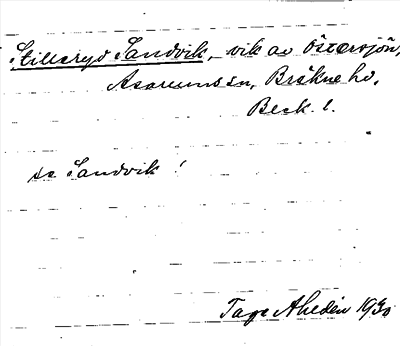 Stilleryd Sandvik, vik av Östersjön,
Asarums sn, Bräkne hd,
Blek. l.
se Sandvik !
Tage Ahldén 1930